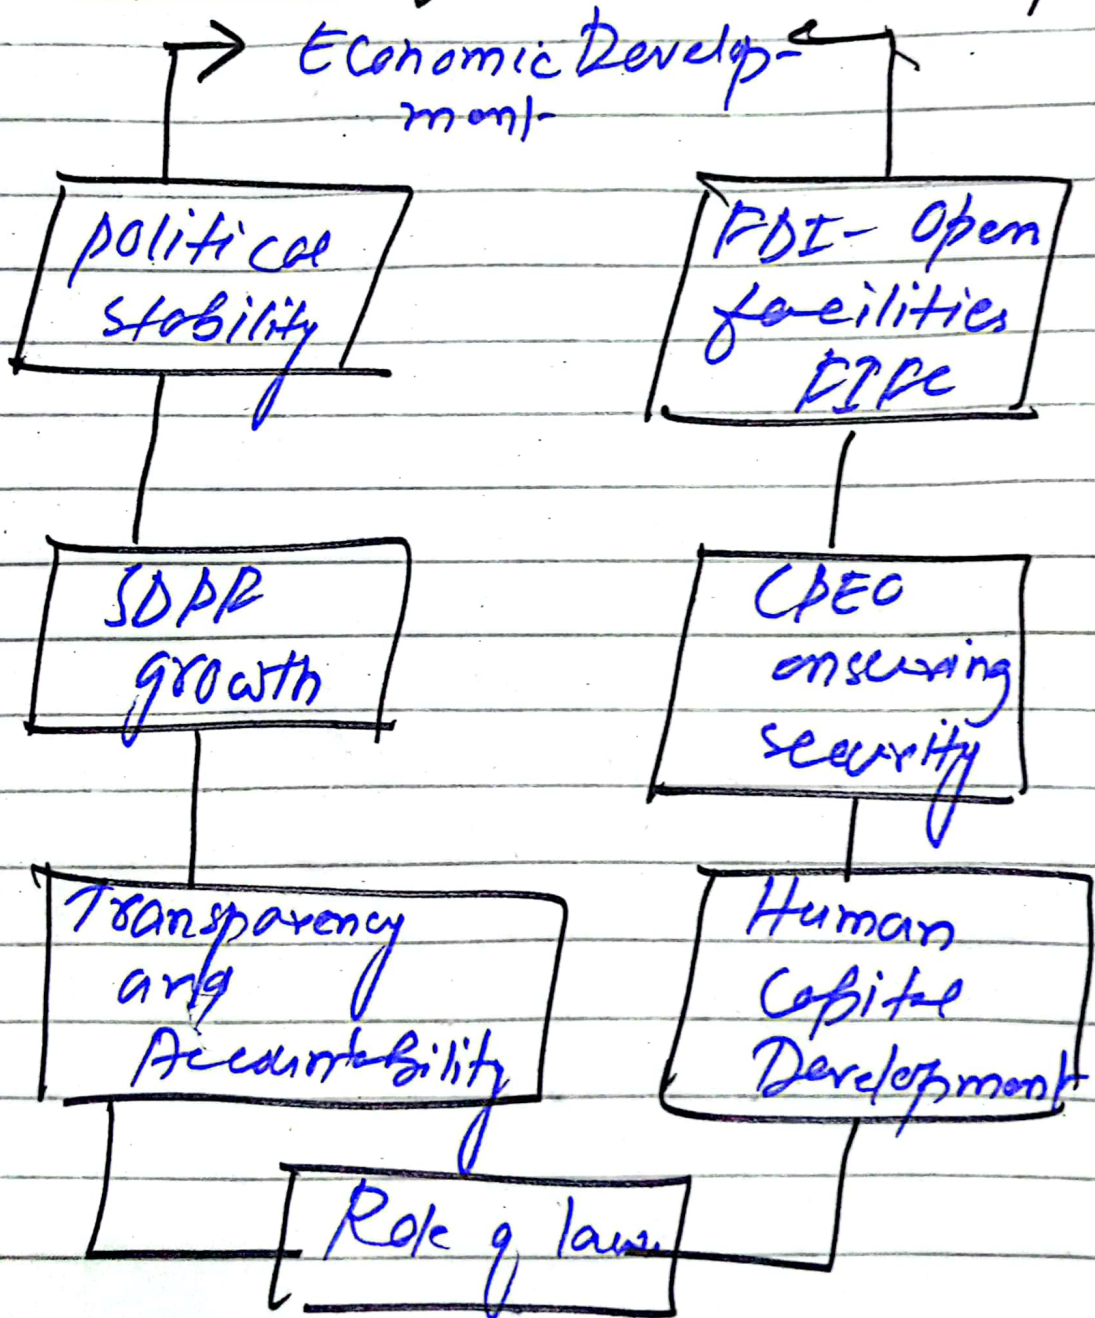 Economic Develop-
ment
political
stability
FDI- Open
facilities
growth
CPEC
ensuring
security
Transparency
and
Accountability
Human
Capital
Development
Role of law